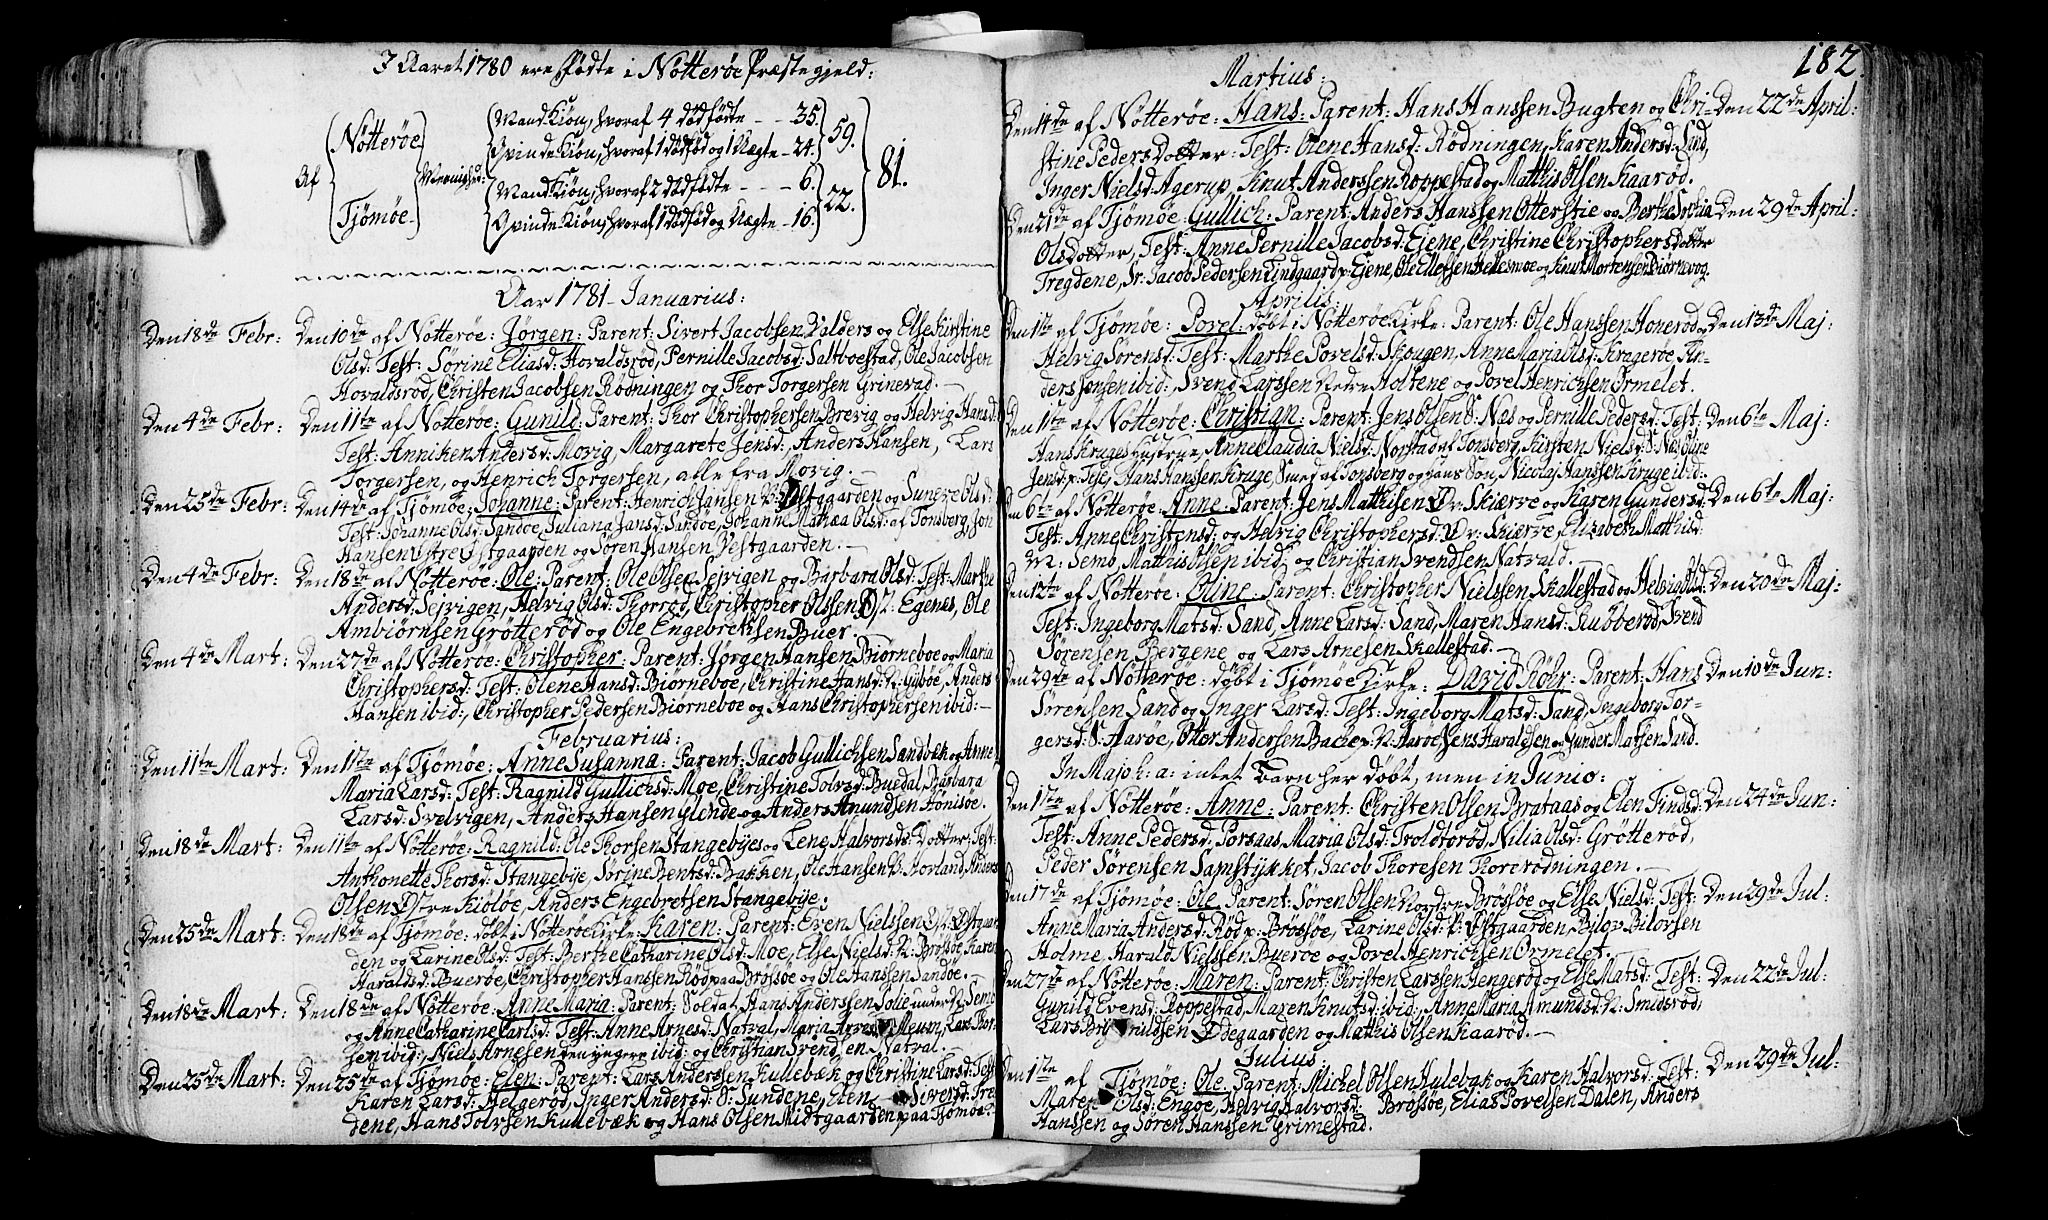 I Aaret 1780 ere fødte i Nøtterøe Præstegjeld:
Af Nøtterøe Menighed: MandKiøn, hvoraf 4 dødfødte - - 35.
QvindeKiøn, hvoraf 1 dødfød og 1 Uægte - 24. 59.
Tjømøe MandKiøn, hvoraf 2 dødfødte - - - 6.
QvindeKiøn, hvoraf 1 dødfød og Uægte - 16. 22. 81.
Aar 1781 - Januarius:
Den 18de Febr: Den 10de af Nøtterøe: Jørgen: Parent: Sivert Jacobsen Valders og Else Kirstine
Olsd: Test: Sørine Eliasd: Hovaldsrød, Pernille Jacobsd: Saltboestad, Ole Jacobsen
Hovaldsrød, Christen Jacobsen Rødningen og Thor Torgersen Grinevad.
Den 4de Febr: Den 11te af Nøtterøe: Gunild: Parent: Thor Christophersen Brevig og Helvig Hansd:
Test: Anniken Andersd: Movig, Margarete Jensd:, Anders Hansen, Lars
Torgersen, og Henrich Torgersen, alle fra Movig.
Den 25de Febr: Den 14de af Tjømøe: Johanne: Parent: Henrich Jansen Østgaarden og Sunève Olsd:
Test: Johanne Olsd: Sandøe, Juliana Jansd: Sandøe, Johanne Mathea Olsd: af Tonsberg, Jon
Hansen Østre Østgaarden og Søren Hansen Vestgaarden.
Den 4de Febr: Den 18de af Nøtterøe: Ole: Parent: Ole Olsen Sejvigen og Barbara Olsd: Test: Marthe
Andersd: Sejvigen, Helvig Olsd: Thorrød, Christopher Olssen Egenes, Ole
Ambiørnsen Grøtterød og Ole Engebretsen Buer
Den 4de Mart: Den 27de af Nøtterøe: Christopher: Parent: Jørgen Hansen Biørneboe og Maria
Christophersd: Test: Olene Hansd: Biørneboe, Christine Hansd: N: Gyboe, Anders
Hansen ibid:, Christopher Pedersen Biørneboe og Hans Christophersen ibid:
Februarius:
Den 11te Mart: Den 1te af Tjømøe: Anne Susanna: Parent: Jacob Gullichsen Sandbæk og Anne
Maria Larsd: Test: Ragnild Gullichsd: Moe, Christine Tolvsd: Busdal, Barbara
Larsd: Svelvigen, Anders Hansen Glende og Anders Amundsen Hønisoe.
Den 18de Mart: Den 11te af Nøtterøe: Ragnild: Ole Thorsen Stangebyes og Lene Halvorsds Dotter: Test:
Anthonette Thorsd: Stangebye, Sørine Bentsd: Bakken, Ole Hansen N: Horland, Anders
Olsen Østre Kiøløe, Anders Engebretsen Stangebye.
Den 25de Mart: Den 18de af Tjømøe: døbt i Nøtterøe Kirke: Karen: Parent: Even Nielssen Ø: Østgaar
den og Larine Olsd: Test: Berthe Catharine Olsd: Moe, Else Nielsd: N: Brøssøe, Karen
Haraldsd: Buerøe, Christopher Hanssen Rød paa Brøssøe og Ole Hanssen Sandøe.
Den 18de Mart: Den 18de af Nøtterøe: Anne Maria: Parent: Soldat Hans Anderssen Solie under N: Semb
og Anne Catharine Carlsd: Test: Anne Arnesd: Natval, Maria Meum, Lars Thor-
sen ibid:, Niels Arnesen den yngere ibid: og Christian Svendsen Natval.
Den 25de Mart: Den 25de af Tjømøe: Elen: Parent: Lars Anderssen Kullebæk og Christine Larsd: Test:
Karen Larsd: Helgerød, Inger Andersd: S: Sundene, Elen Siversd: Tre
dene, Hans Tolvsen Kullebæk og Hans Olsen Midtgaarden paa Tjømøe.
182.
Martius:
Den 14de af Nøtterøe: Hans: Parent: Hans Hanssen Bugten og Chri- Den 22de April:
stine Peders Dotter: Test: Olene Hansd: Rødningen, Karen Andersd: Lind,
Inger Nielsd: Agerup, Knut Anderssen Roppestad og Matthis Olsen Kaarød.
Den 21de af Tjømøe: Gullich: Parent: Anders Hanssen Otterstie og Berthe Sophia Den 29de April:
Olsdotter, Test: Anne Pernille Jacobsd: Ejene, Christine Christophersdotter
Tregdene, Sr: Jacob Pedersen Lindgaard p: Ejene, Ole Ellefsen Hellesmoe og Knut Mortensen Biørnevog.
Aprilis:
Den 1te af Tjømøe: Povel: døbt i Nøtterøe Kirke: Parent: Ole Hanssen Honerød og Den 13de Maj:
Helvig Sørensd: Test: Marthe Povelsd: Skougen, Anne Maria Olsd: Kragerøe, An-
ders Jonsen ibid:, Svend Larssen Nedre Holtene og Povel Henrichsen Ormelet.
Den 1te af Nøtterøe: Christian: Parent: Jens Olsen S: Nes og Pernille Pedersd: Test: Den 6te Maj:
Hans Kruges Hustrue, Anne Claudia Nielsd: Norstad af Tonsberg, Kirsten Nielsd: S: Nes, Oline
Jensd: p: Teje, Hans Hanssen Kruge, Smed af Tonsberg og hans Søn, Nicolaj Hanssen Kruge ibid:
Den 6te af Nøtterøe: Anne: Parent: Jens Matthisen Ø: Skierve og Karen Gundersd: Den 6te Maj:
Test: Anne Christensd: og Helvig Christophersd: Ø: Skierve, Elisabeth Mathisd:
N: Semb, Mathis Olsen ibid: og Christian Svendsen Natvald.
Den 12te af Nøtterøe: Oline: Parent: Christopher Nielssen Skallestad og Helvig Olsd: Den 20de Maj:
Test: Ingeborg Matsd: Sand, Anne Larsd: Sand, Maren Hansd: Stubberød, Svend
Sørensen Bergene og Lars Arnesen Skallestad.
Den 29de af Nøtterøe: døbt i Tjømøe Kirke: David Røhr: Parent: Hans Den 10de Jun:
Sørensen Sand og Inger Larsd: Test: Ingeborg Matsd: Sand, Ingeborg Tor-
gersd: S: Aarøe, Otter Andersen Backe p: N: Aarøe, Jens Haraldsen og Gunder Matsen Sand.
In Majo h: a: intet Barn her døbt, men in Junio:
Den 1te af Nøtterøe: Anne: Parent: Christen Olsen Brataas og Elen Findsd: Den 24de Jun:
Test: Anne Pedersd: Porsaas, Maria Olsd: Troldtorød, Nilia Olsd: Grøtterød,
Peder Sørensen Samstykket, Jacob Thoresen Thorerødningen.
Den 17de af Tjømøe: Ole: Parent: Søren Olsen Nordre Brøssøe og Else Nielsd: Test: Den 29de Jul:
Anne Maria Andersd: Rød p: Brøssøe, Larine Olsd: Østgaarden, Bilov Bilovsen
Holme, Harald Nielssen Buerøe og Povel Henrichsen Ormelet.
Den 27de af Nøtterøe: Maren: Parent: Christen Larssen Hengerød og Else Matsd: Test: Den 22de Jul:
Gunild Evensd: Roppestad, Maren Knutsd: ibid:, Anne Maria Amundsd: N: Smidsrød,
Lars Brynildsen Ødegaarden og Matthis Olsen Kaarød.
Julius:
Den 1te af Tjømøe: Ole: Parent: Michel Olsen Hulebak og Karen Halvorsd: Test: Den 29de Jul:
Olsd: Engøe, Helvig Halvorsd: Brøssøe, Elias Povelsen Dalen, Anders
Hanssen og Søren Hanssen Grimestad.